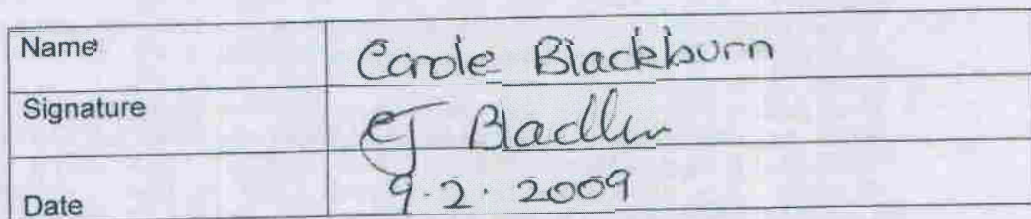 Name Carole Blackburn
Signature CJ
Date 9.2.2009